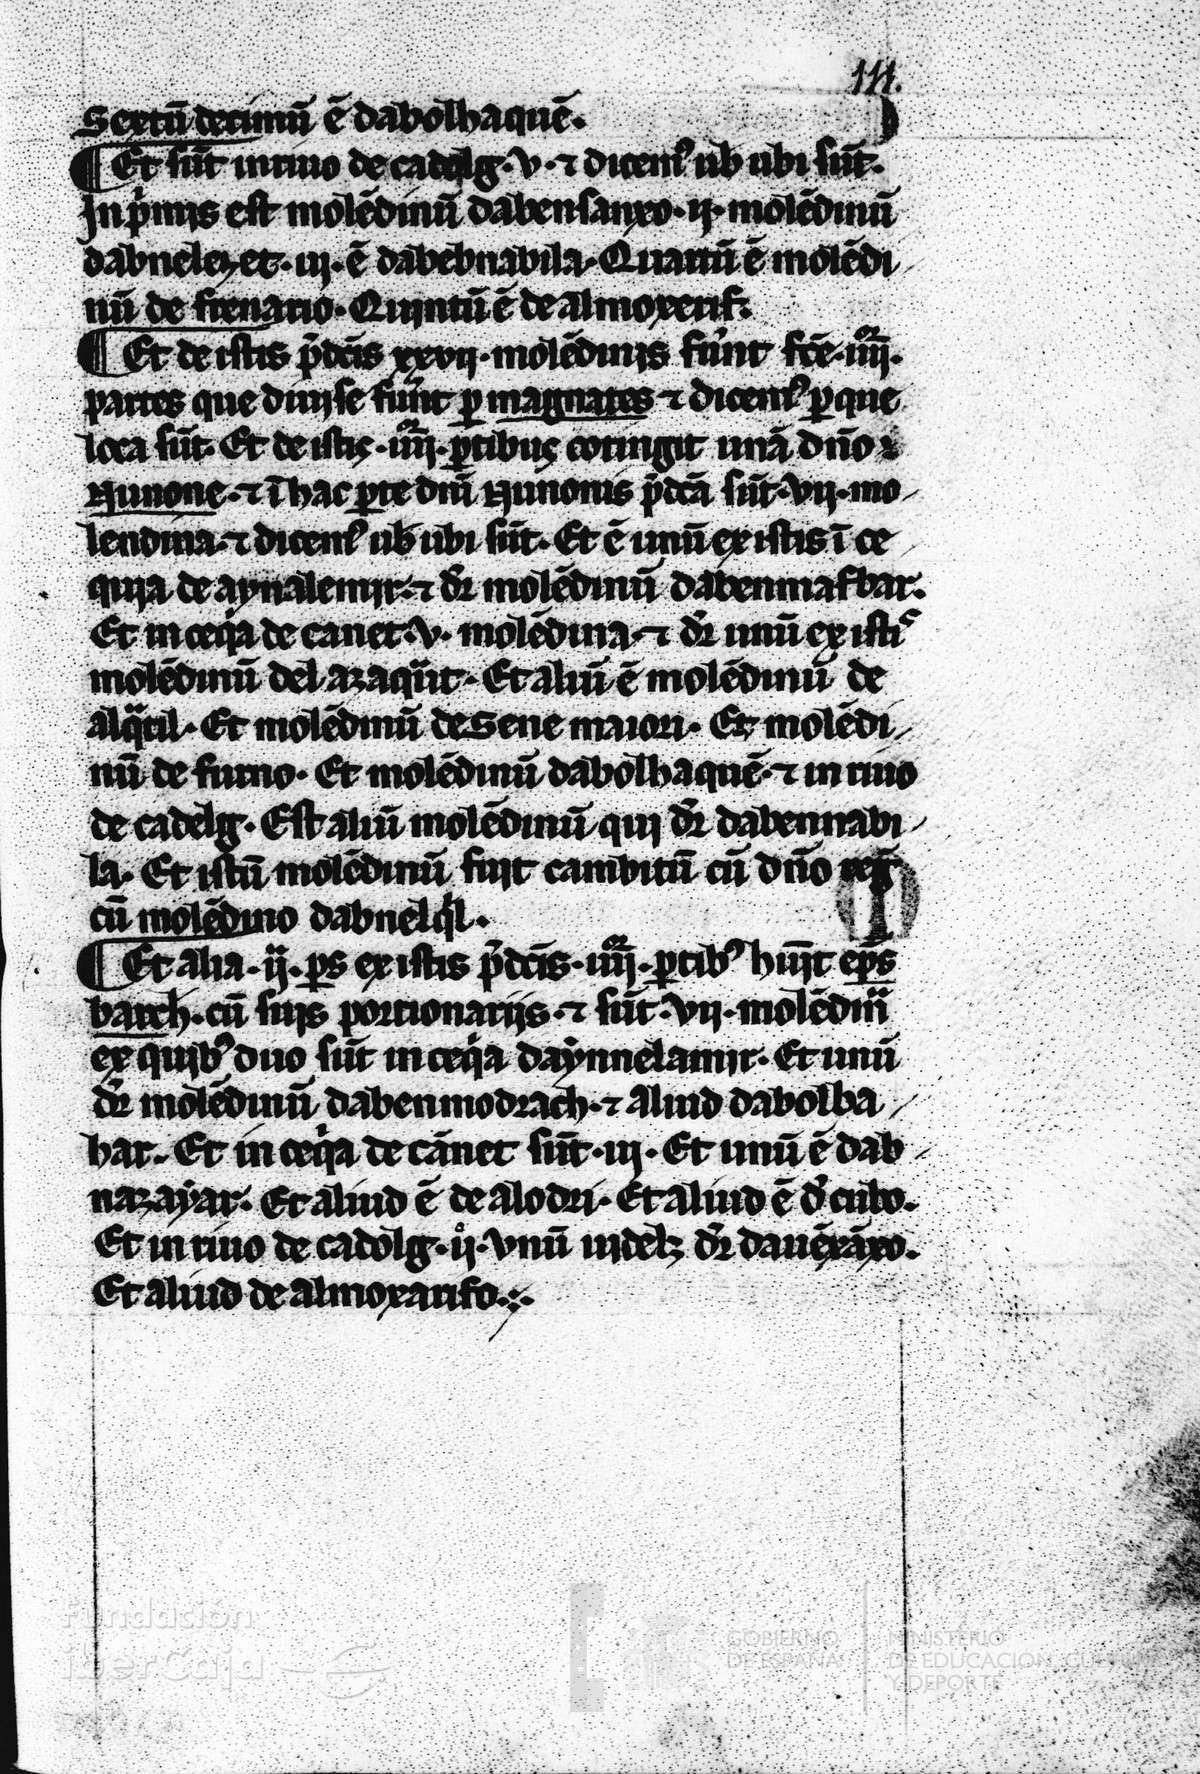 111.
Sextū decimū ē dabolhaquē.
¶ Et sūt in riuo de cadelg · v · ⁊ dicemꝰ ub ubi sūt.
In p̄mis est molēdinū dabensanxo · ij · molēdinū
dabnelez et · iij · ē dabebnabila · Quartū ē molēdi
nū de frenario · Quintū ē de almoxerif.
¶ Et de istis p̄dc̄is xxvij · molēdinis fu͛nt fc̄e · iiij ·
partes que diuise fu͛nt ꝑ magnates ⁊ dicemꝰ ꝑ que
loca sūt · Et de istis · iiij · ꝑtibus cōtingit unā dn̄o
Nunone · ⁊ ī hac ꝑte dn̄i Nunonis p̄dc̄a sūt · vij · mo
lendina · ⁊ dicemꝰ ub ubi sūt · Et ē unū ex istis ī ce
quia de aynalemir · ⁊ dr̄ molēdinū
Et in ceq̇a de canet · v · molēdina · ⁊ dr̄ unū ex istis
molēdinū del azaq̈it · Et aliū ē molēdinū de
alq̈til · Et molēdinū de Sene maiori · Et molēdi
nū de furno · Et molēdinū dabolhaquē · ⁊ in riuo
de cadelg · Est aliū molēdinū qui dr̄ dabennabi
la · Et istū molēdinū fuit cambitū cū dn̄o reg̅
cū molēdino dabnelq̇l ·
¶ Et alia · ij · ꝑs ex istis p̄dc̄is · iiij · ꝑtibꝰ hūit ep̄s
barch · cū suis portionarijs · ⁊ sūt · vij · molēdin̄
ex quibꝰ duo sūt in ceq̇a daẏnnelamir · Et unū
dr̄ molēdinū dabenmodrach · ⁊ aliud dabolba
har · Et in ceq̇a de cānet sūt · iij · Et unū ē dab
nazaẏar · Et aliud ē de alodri · Et aliud ē d̓ cubo ·
Et in riuo de cadolg · ij · vnū uidelz dr̄ dauēxāxo ·
Et aliud de almoxarifo ·
Fundación
iberCaja
GOBIERNO
DE ESPAÑA
MINISTERIO
DE EDUCACIÓN, CULTURA
Y DEPORTE